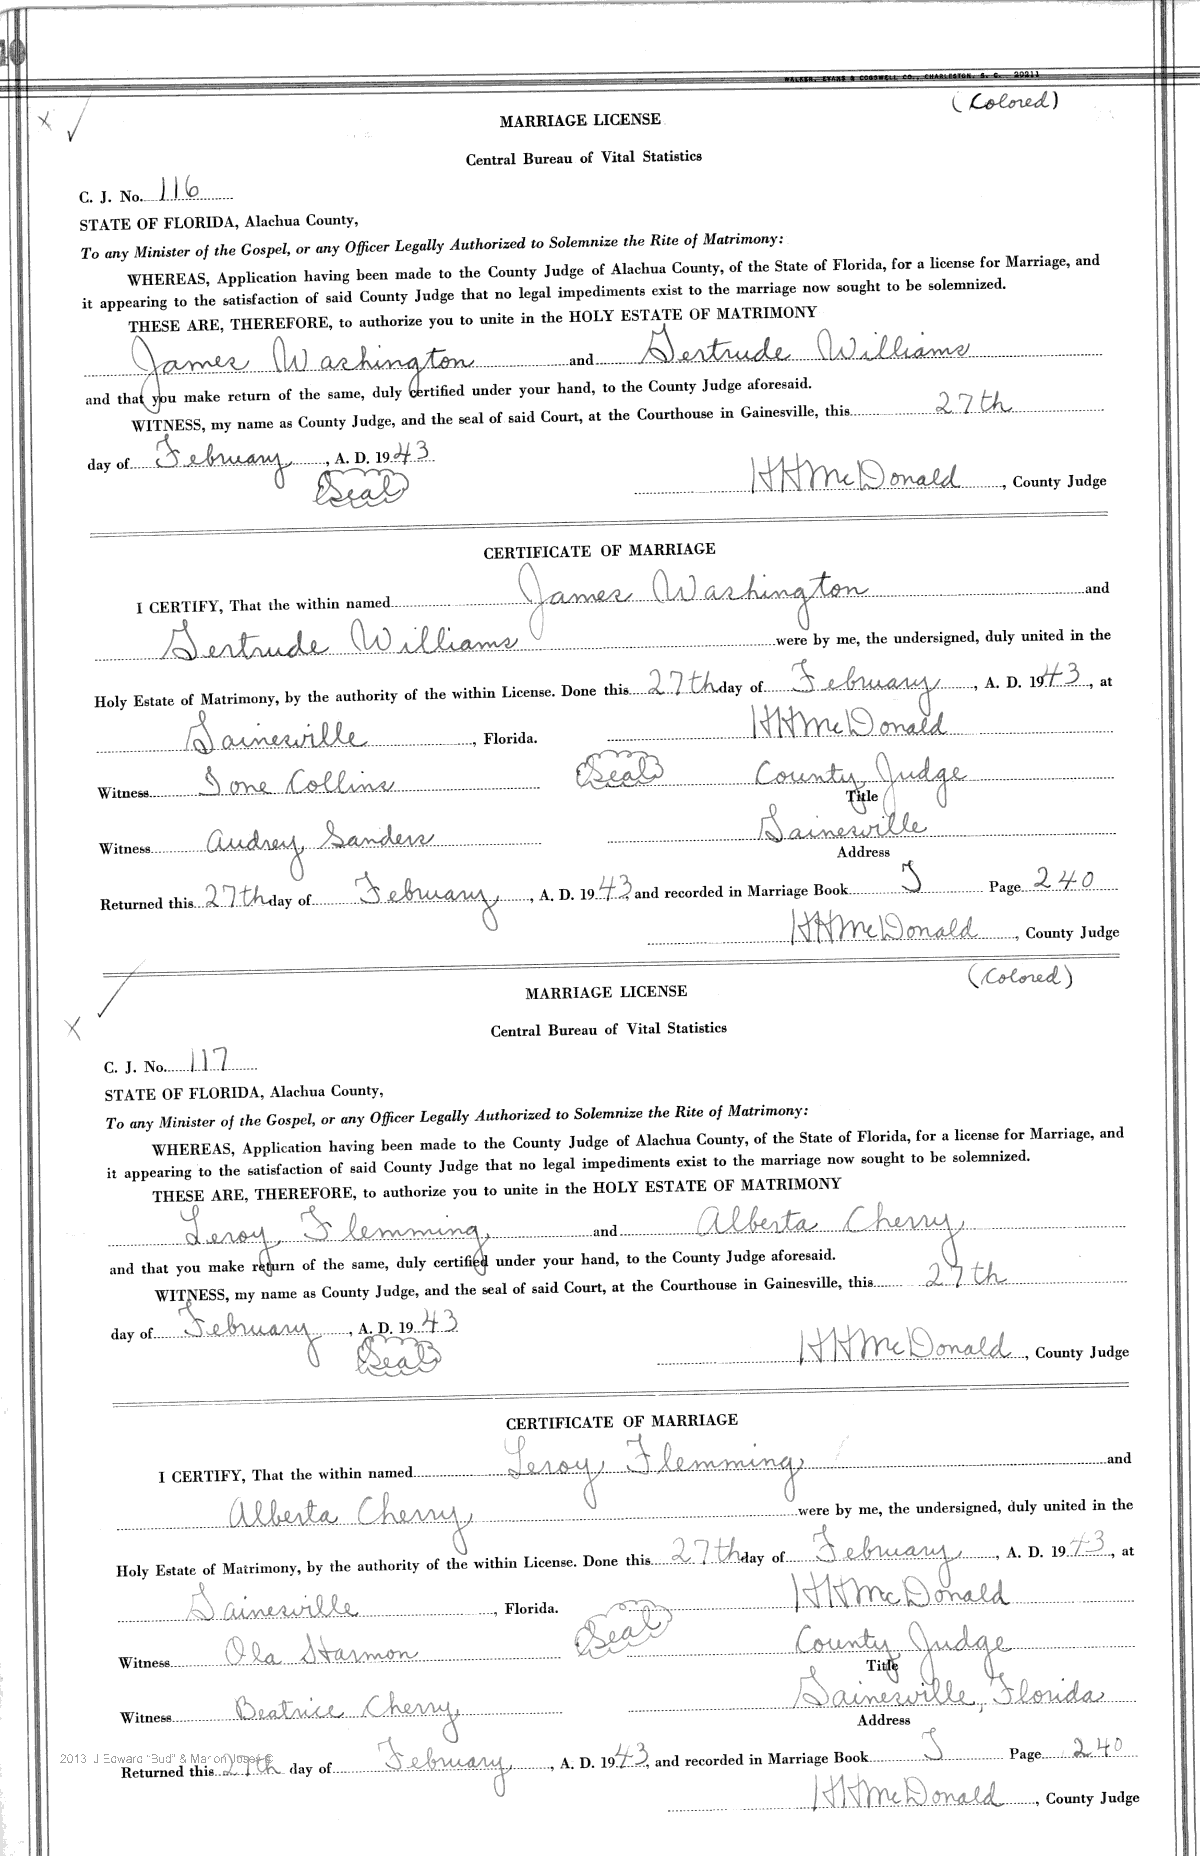 WALKER, EVANS & COGSWELL CO., CHARLESTON, S. C. 20211
(Colored)
MARRIAGE LICENSE
Central Bureau of Vital Statistics
C. J. No. 116
STATE OF FLORIDA, Alachua County,
To any Minister of the Gospel, or any Officer Legally Authorized to Solemnize the Rite of Matrimony:
WHEREAS, Application having been made to the County Judge of Alachua County, of the State of Florida, for a license for Marriage, and
it appearing to the satisfaction of said County Judge that no legal impediments exist to the marriage now sought to be solemnized.
THESE ARE, THEREFORE, to authorize you to unite in the HOLY ESTATE OF MATRIMONY
James Washington and Gertrude Williams
and that you make return of the same, duly certified under your hand, to the County Judge aforesaid.
WITNESS, my name as County Judge, and the seal of said Court, at the Courthouse in Gainesville, this 27th
day of February, A. D. 1943
(Seal) HHMcDonald, County Judge
CERTIFICATE OF MARRIAGE
I CERTIFY, That the within named James Washington and
Gertrude Williams were by me, the undersigned, duly united in the
Holy Estate of Matrimony, by the authority of the within License. Done this 27th day of February, A. D. 1943, at
Gainesville, Florida. HHMcDonald
Witness Ione Collins (Seal) County Judge
Title
Witness Audrey Sanders Gainesville
Address
Returned this 27th day of February, A. D. 1943, and recorded in Marriage Book J Page 240
HHMcDonald, County Judge
(Colored)
MARRIAGE LICENSE
Central Bureau of Vital Statistics
C. J. No. 117
STATE OF FLORIDA, Alachua County,
To any Minister of the Gospel, or any Officer Legally Authorized to Solemnize the Rite of Matrimony:
WHEREAS, Application having been made to the County Judge of Alachua County, of the State of Florida, for a license for Marriage, and
it appearing to the satisfaction of said County Judge that no legal impediments exist to the marriage now sought to be solemnized.
THESE ARE, THEREFORE, to authorize you to unite in the HOLY ESTATE OF MATRIMONY
Leroy Flemming and Alberta Cherry
and that you make return of the same, duly certified under your hand, to the County Judge aforesaid.
WITNESS, my name as County Judge, and the seal of said Court, at the Courthouse in Gainesville, this 27th
day of February, A. D. 1943
(Seal) HHMcDonald, County Judge
CERTIFICATE OF MARRIAGE
I CERTIFY, That the within named Leroy Flemming and
Alberta Cherry were by me, the undersigned, duly united in the
Holy Estate of Matrimony, by the authority of the within License. Done this 27th day of February, A. D. 1943, at
Gainesville, Florida. HHMcDonald
Witness Ola Harmon (Seal) County Judge
Title
Witness Beatrice Cherry Gainesville, Florida
Address
2013 J Edward "Bud" & Marion
Returned this 27th day of February, A. D. 1943, and recorded in Marriage Book J Page 240
HHMcDonald, County Judge